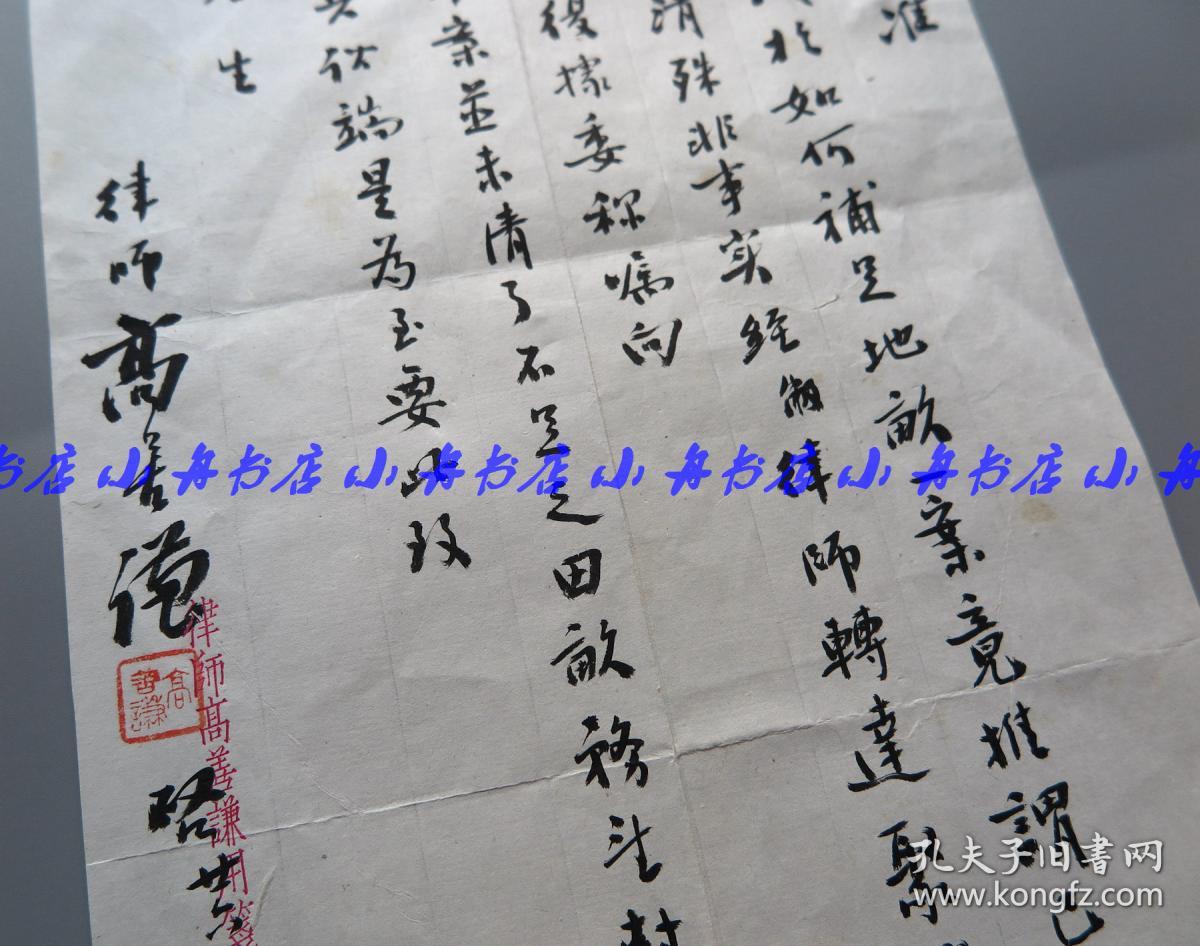 准
於如何補足地畝一案竟推謂已
清殊非事实經敝律師轉達緊
復據委稱嘱向
案並未清了不足之田畝務望
伙端是為至要此致
生
律師高善謙
高善謙
律師高善謙用箋
啓
小舟书店 小舟书店 小舟书店 小舟
孔夫子旧书网
www.kongfz.com